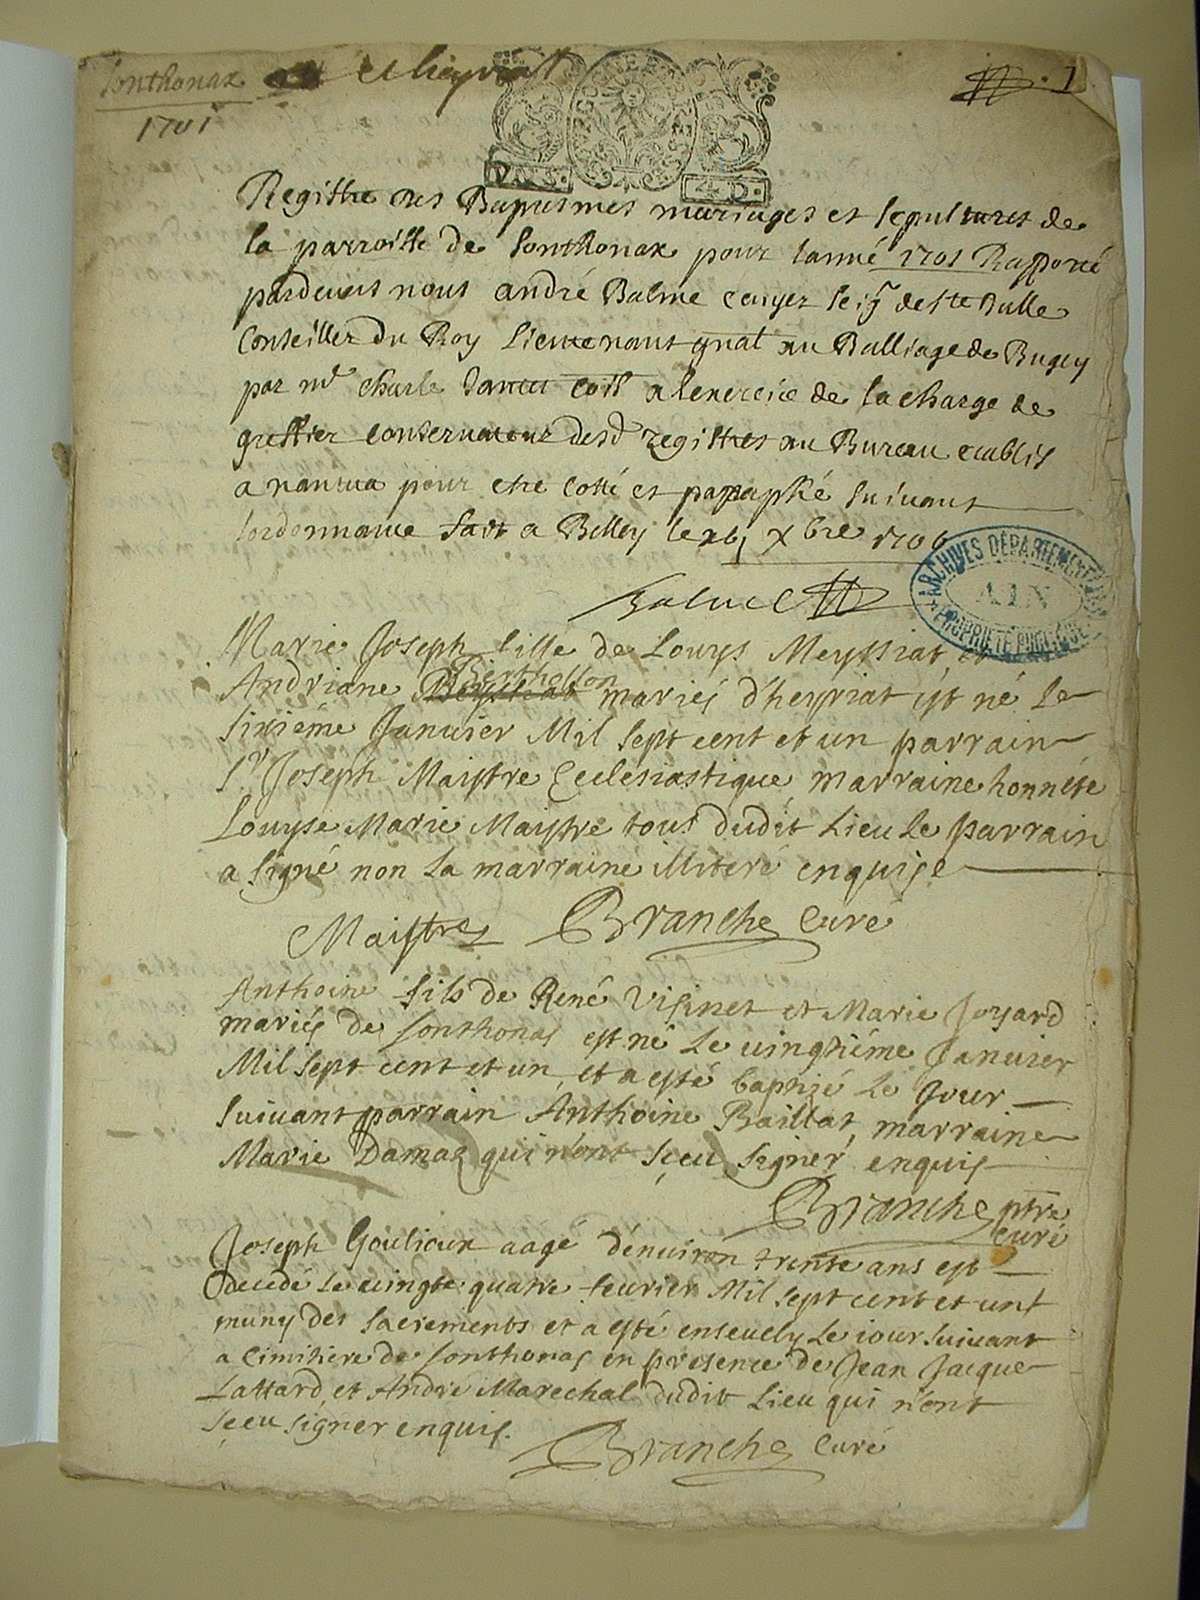 Sonthonax et heyriat
1701
1
4 D.
Registre des Baptesmes mariages et sepultures de
la parroisse de Sonthonax pour lanné 1701 Rapporté
pardevant nous andré Balme ecuyer seig de Ste Julle
Conseiller du Roy Lieutenant gnal au Balliage de Bugey
par mr Charle comis a lexercice de la charge de
greffier conservateur desd registres au Bureau etablis
a nantua pour etre cotté et paraphé suivant
lordonnance fait a Belley le xbre 1700
Balme
ARCHIVES DÉPARTEMENTALES
AIN
PROPRIÉTÉ PUBLIQUE
Marie Joseph fille de Louys Meyssiat et
Andriane Berthellon mariés d'heyriat est né le
sixiéme Janvier Mil sept cent et un parrain
Sr Joseph Maistre Eclesiastique marraine honnéte
Louyse Marie Maistre tous dudit Lieu le parrain
a signé non la marraine illiteré enquise
Maistre Branche Curé
Anthoine fils de René Visinet et Marie Joyard
mariés de Sonthonas est né le vingtiéme Janvier
Mil sept cent et un et a esté baptizé le Jour
suivant parrain Anthoine Baillat, marraine
Marie Damas qui n'ont sçeu signer enquis
Branche ptre
Curé
Joseph Goulioux aagé d'environ trente ans est
decedé le vingte quatre fevrier Mil sept cent et unt
muny des sacrements et a esté ensevely le iour suivant
a Cimitiere de Sonthonas en presence de Jean Jacque
Lattard et André Marechal dudit Lieu qui n'ont
sçeu signer enquis.
Branche Curé